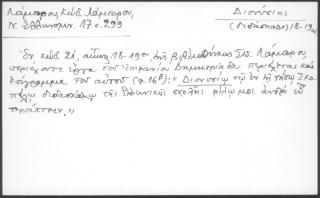 Λάμπρος, Κώδ. Λάμπρου,
Ν. Ἑλληνομν. 17 σ. 299
Διονύσιος
(διδάσκαλος) 18-19
Ἐν κώδ. 21, αἰῶν. 18-19ου τῆς βιβλιοθήκης Σπ. Λάμπρου,
περιέχοντι ἔργα τοῦ Δημητριάδου περιέχεται καὶ
ἐπίγραμμα τοῦ αὐτοῦ (φ. 16β): "Διονυσίῳ τῷ ἐν τῇ νήσῳ Σκο-
πέλῳ διδασκάλῳ τῆς ἑλληνικῆς σχολῆς φίλῳ μοι ἀνδρὶ εὖ
πράττειν."